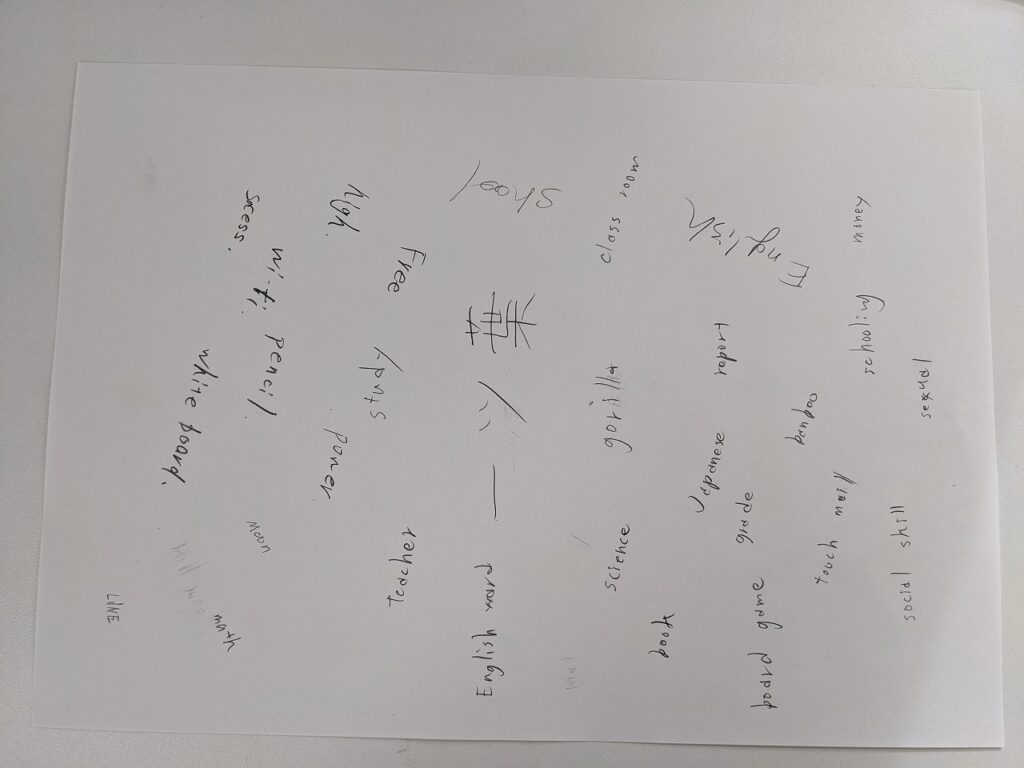 LINE
white board.
math
moon
wi-fi.
pencil.
high.
power
Free
study
teacher
English word
一ツ葉
shool
gorilla
science
class room
book
Japanese
report
English
grade
board game
bamboo
touch mall
schooling
money
social skill
sexual